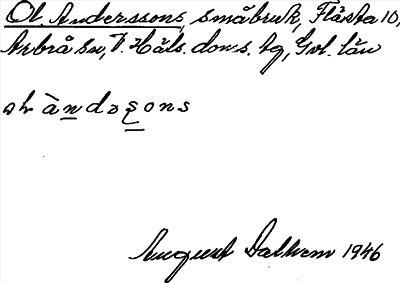 Ol Anderssons, småbruk, Flästa 10,
Arbrå sn, V. Häls. doms. tg, Gvl. län
àndaşons
August Dalhem 1946